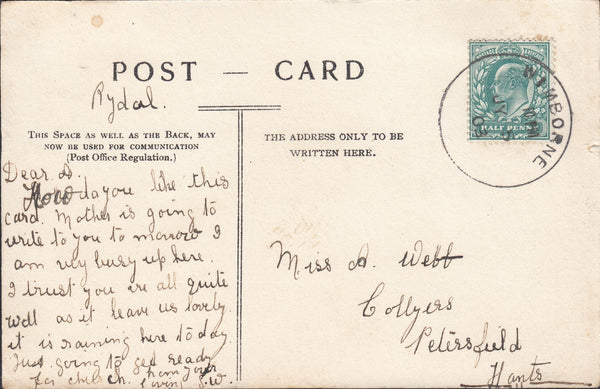 POST — CARD
Rydal.
THIS SPACE AS WELL AS THE BACK, MAY
NOW BE USED FOR COMMUNICATION
(Post Office Regulation.)
Dear A.
How do you like this
card. Mother is going to
write to you to morrow I
am very busy up here.
I trust you are all quite
well as it leave us lovely.
it is raining here to day
Just going to get ready
for church. from your
loving S.W.
THE ADDRESS ONLY TO BE
WRITTEN HERE.
HALF PENNY
Miss A. Webb
Collyers
Petersfield
Hants